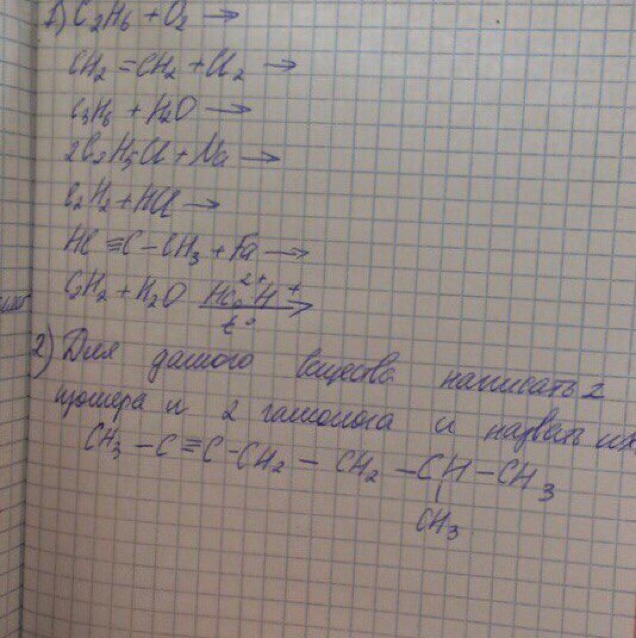 1) C₂H₆ + O₂ →
CH₂ = CH₂ + Cl₂ →
C₃H₆ + H₂O →
2C₂H₅Cl + Na →
C₂H₂ + HCl →
HC ≡ C – CH₃ + →
C₂H₂ + H₂O Hg²⁺, H⁺ → t°
2) Для данного вещества написать 2
изомера и 2 гамолога и назвать их
CH₃ – C ≡ C – CH₂ – CH₂ – CH – CH₃
CH₃